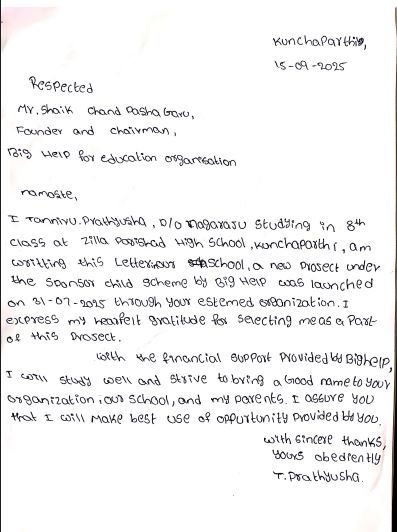 Kunchaparthi,
15-09-2025
Respected
Mr. Shaik Chand Pasha Garu,
Founder and chairman,
Big Help for education organisation
namaste,
I Tanniru.Prathyusha, D/o Nagaraju studying in 8th
class at Zilla Parishad High School, Kunchaparthi, am
writting this Letter. in our School, a new Project under
the sponsor child scheme by Big Help was launched
on 31-07-2025 through your estemed organization. I
express my hearfelt gratitude for selecting me as a Part
of this Project.
with the financial support Provided by BigHelp,
I will study well and strive to bring a Good name to your
organization, our school, and my parents. I assure you
that I will make best use of oppurtunity Provided by you.
with sincere thanks,
yours obediently
T. Prathyusha.